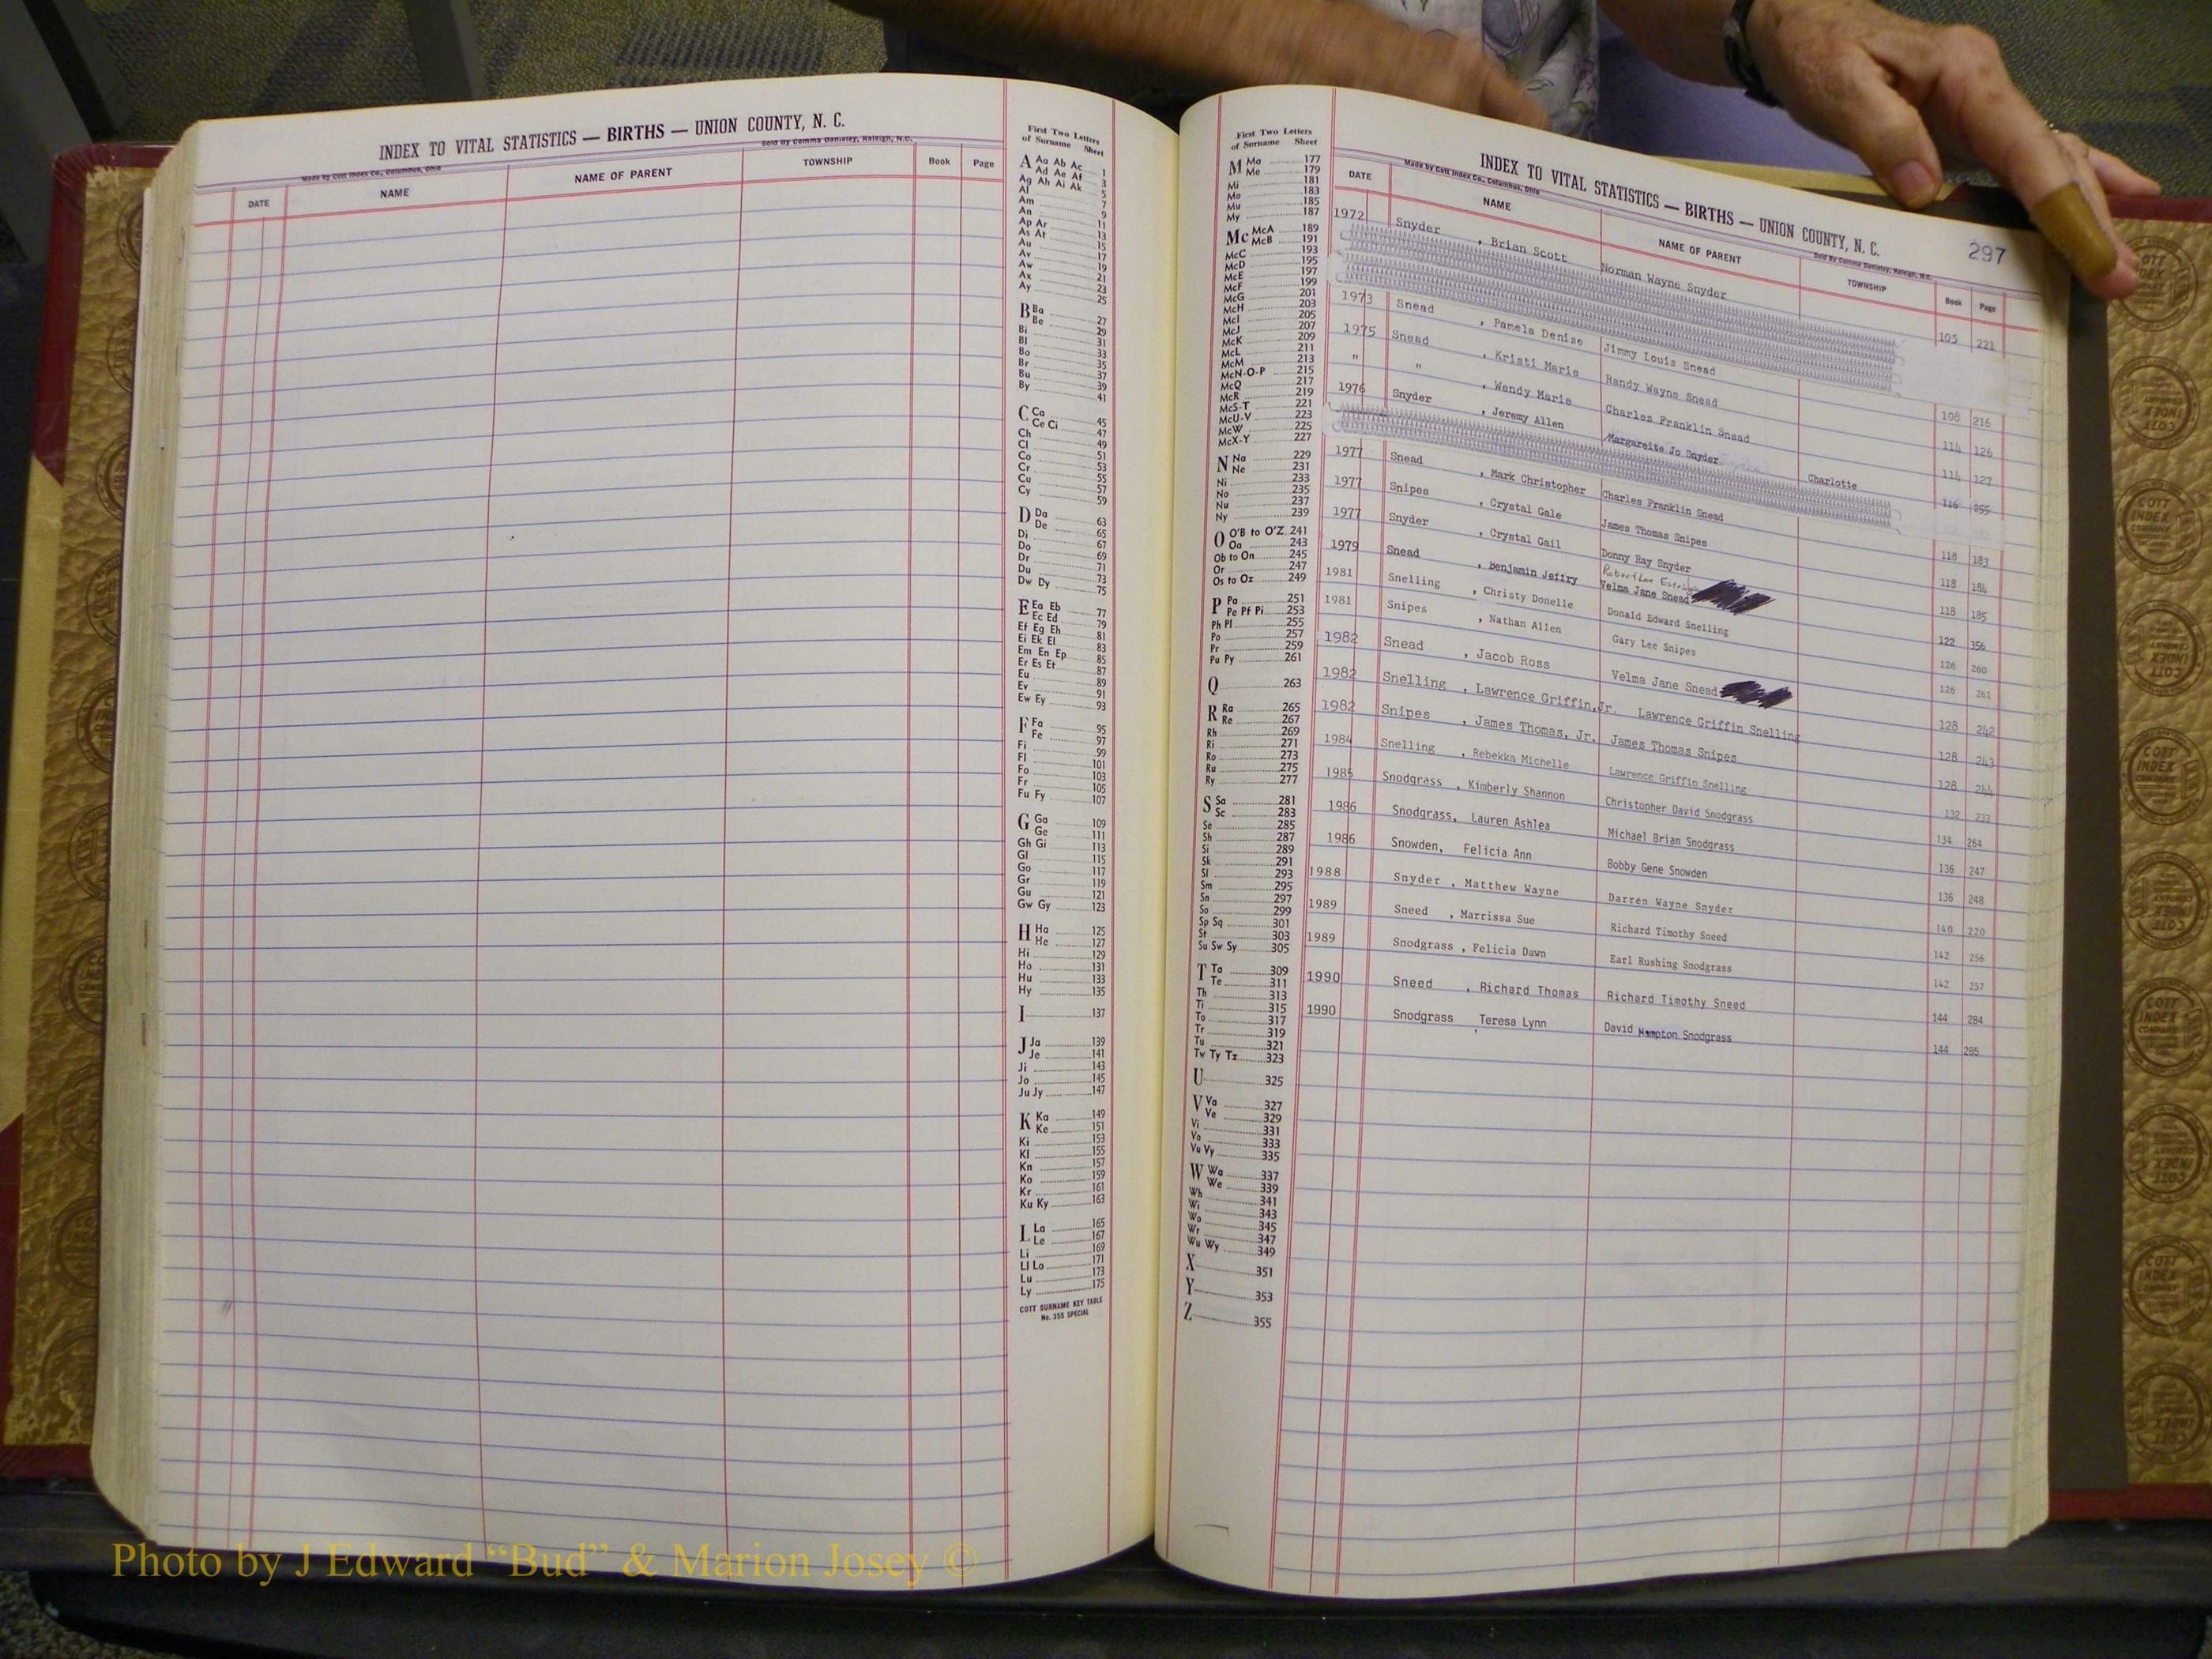 INDEX TO VITAL STATISTICS — BIRTHS — UNION COUNTY, N. C.
Made by Cott Index Co., Columbus, Ohio
Sold By Comma Danieley, Raleigh, N.C.
DATE NAME NAME OF PARENT TOWNSHIP Book Page
First Two Letters
of Surname Sheet
A Aa Ab Ac 1
Ad Ae Af 3
Ag Ah Ai Ak 5
Al 7
Am 9
An 11
Ap Ar 13
As At 15
Au 17
Av 19
Aw 21
Ax 23
Ay 25
B Ba 27
Be 29
Bi 31
Bl 33
Bo 35
Br 37
Bu 39
By 41
C Ca 45
Ce Ci 47
Ch 49
Cl 51
Co 53
Cr 55
Cu 57
Cy 59
D Da 63
De 65
Di 67
Do 69
Dr 71
Du 73
Dw Dy 75
E Ea Eb 77
Ec Ed 79
Ef Eg Eh 81
Ei Ek El 83
Em En Ep 85
Er Es Et 87
Eu 89
Ev 91
Ew Ey 93
F Fa 95
Fe 97
Fi 99
Fl 101
Fo 103
Fr 105
Fu Fy 107
G Ga 109
Ge 111
Gh Gi 113
Gl 115
Go 117
Gr 119
Gu 121
Gw Gy 123
H Ha 125
He 127
Hi 129
Ho 131
Hu 133
Hy 135
I 137
J Ja 139
Je 141
Ji 143
Jo 145
Ju Jy 147
K Ka 149
Ke 151
Ki 153
Kl 155
Kn 157
Ko 159
Kr 161
Ku Ky 163
L La 165
Le 167
Li 169
Ll Lo 171
Lu 173
Ly 175
COTT SURNAME KEY TABLE
No. 355 SPECIAL
First Two Letters
of Surname Sheet
M Ma 177
Me 179
Mi 181
Mo 183
Mu 185
My 187
Mc McA 189
McB 191
McC 193
McD 195
McE 197
McF 199
McG 201
McH 203
McI 205
McJ 207
McK 209
McL 211
McM 213
McN-O-P 215
McQ 217
McR 219
McS-T 221
McU-V 223
McW 225
McX-Y 227
N Na 229
Ne 231
Ni 233
No 235
Nu 237
Ny 239
O O'B to O'Z 241
Oa 243
Ob to On 245
Or 247
Os to Oz 249
P Pa 251
Pe Pf Pi 253
Ph Pl 255
Po 257
Pr 259
Pu Py 261
Q 263
R Ra 265
Re 267
Rh 269
Ri 271
Ro 273
Ru 275
Ry 277
S Sa 281
Sc 283
Se 285
Sh 287
Si 289
Sk 291
Sl 293
Sm 295
Sn 297
So 299
Sp Sq 301
St 303
Su Sw Sy 305
T Ta 309
Te 311
Th 313
Ti 315
To 317
Tr 319
Tu 321
Tw Ty Tz 323
U 325
V Va 327
Ve 329
Vi 331
Vo 333
Vu Vy 335
W Wa 337
We 339
Wh 341
Wi 343
Wo 345
Wr 347
Wu Wy 349
X 351
Y 353
Z 355
INDEX TO VITAL STATISTICS — BIRTHS — UNION COUNTY, N. C. 297
Made by Cott Index Co., Columbus, Ohio
Sold By Comma Danieley, Raleigh, N.C.
DATE NAME NAME OF PARENT TOWNSHIP Book Page
1972 Snyder , Brian Scott Norman Wayne Snyder 105 221
1973 Snead , Pamela Denise Jimmy Louis Snead 108 216
1975 Snead , Kristi Marie Randy Wayne Snead 114 126
" " , Wendy Marie Charles Franklin Snead 114 127
1976 Snyder , Jeremy Allen Margareite Jo Snyder Charlotte 116 255
1977 Snead , Mark Christopher Charles Franklin Snead 118 183
1977 Snipes , Crystal Gale James Thomas Snipes 118 184
1977 Snyder , Crystal Gail Donny Ray Snyder 118 185
1979 Snead , Benjamin Jeffry Robert Lee Velma Jane Snead 122 356
1981 Snelling , Christy Donelle Donald Edward Snelling 126 260
1981 Snipes , Nathan Allen Gary Lee Snipes 126 261
1982 Snead , Jacob Ross Velma Jane Snead 128 242
1982 Snelling , Lawrence Griffin, Jr. Lawrence Griffin Snelling 128 243
1982 Snipes , James Thomas, Jr. James Thomas Snipes 128 244
1984 Snelling , Rebekka Michelle Lawrence Griffin Snelling 132 233
1985 Snodgrass , Kimberly Shannon Christopher David Snodgrass 134 264
1986 Snodgrass, Lauren Ashlea Michael Brian Snodgrass 136 247
1986 Snowden, Felicia Ann Bobby Gene Snowden 136 248
1988 Snyder , Matthew Wayne Darren Wayne Snyder 140 220
1989 Sneed , Marrissa Sue Richard Timothy Sneed 142 256
1989 Snodgrass , Felicia Dawn Earl Rushing Snodgrass 142 257
1990 Sneed , Richard Thomas Richard Timothy Sneed 144 284
1990 Snodgrass , Teresa Lynn David Hampton Snodgrass 144 285
Photo by J Edward “Bud” & Marion Josey ©